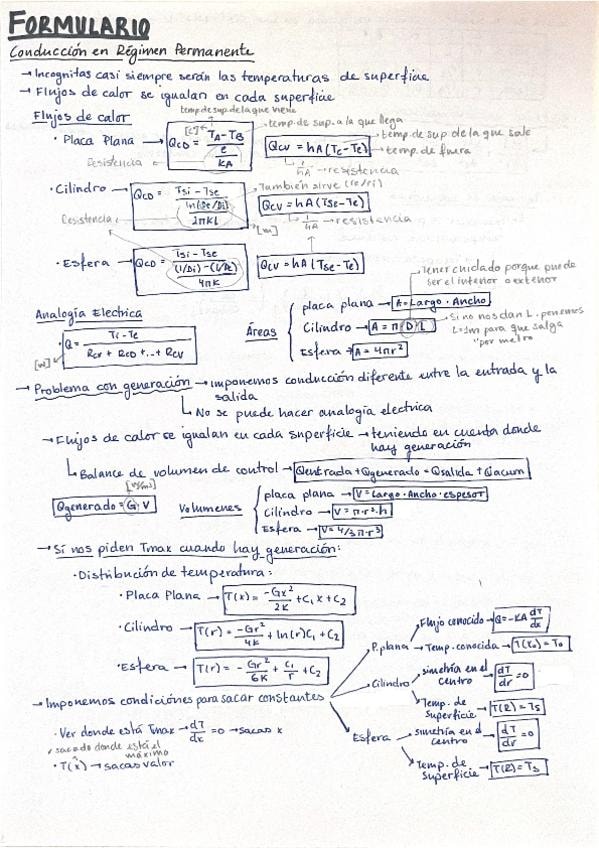 FORMULARIO
Conducción en Régimen Permanente
→ Incognitas casi siempre serán las temperaturas de superficie
→ Flujos de calor se igualan en cada superficie
Flujos de calor
temp de sup de la que viene
[C]
temp. de sup. a la que llega
· Placa Plana → QCD = (TA - TB) / (e / KA)
Resistencia
QCV = hA(Tc - Te)
temp. de sup de la que sale
temp. de fuera
1/hA → resistencia
· Cilindro → QCD = (Tsi - Tse) / (ln(De/Di) / 2πKL)
También sirve (re/ri)
Resistencia
[m]
QCV = hA(Tse - Te)
1/hA → resistencia
· Esfera → QCD = (Tsi - Tse) / ((1/Di) - (1/De) / 4πK)
QCV = hA(Tse - Te)
Analogía Electrica
· Q = (Ti - Te) / (Rcv + RCD + ... + Rcv)
[W]
Áreas
placa plana → A = Largo · Ancho
Cilindro → A = π D L
Esfera → A = 4πr²
Tener cuidado porque puede
ser el interior o exterior
Si no nos dan L. ponemos
L=1m para que salga
"por metro"
→ Problema con generación → imponemos conducción diferente entre la entrada y la
salida
↳ No se puede hacer analogía electrica
→ Flujos de calor se igualan en cada superficie → teniendo en cuenta donde
hay generación
↳ Balance de volumen de control → Qentrada + Qgenerado = Qsalida + Qacum
[W/m³]
Qgenerado = G · V
Volumenes
placa plana → V = Largo · Ancho · espesor
Cilindro → V = π · r² · h
Esfera → V = 4/3 π · r³
→ Si nos piden Tmax cuando hay generación:
· Distribución de temperatura:
· Placa Plana → T(x) = -Gx²/2K + C1x + C2
· Cilindro → T(r) = -Gr²/4K + ln(r)C1 + C2
· Esfera → T(r) = - Gr²/6K + C1/r + C2
→ Imponemos condiciónes para sacar constantes
P.plana
Flujo conocido → Q = -KA dT/dx
Temp. conocida → T(x0) = T0
Cilindro
simetría en el
centro → dT/dr = 0
Temp. de
Superficie → T(R) = Ts
Esfera
simetría en el
centro → dT/dr = 0
Temp. de
superficie → T(R) = Ts
· Ver donde está Tmax → dT/dx = 0 → sacas x
sacado donde está el
máximo
· T(x) → sacas valor